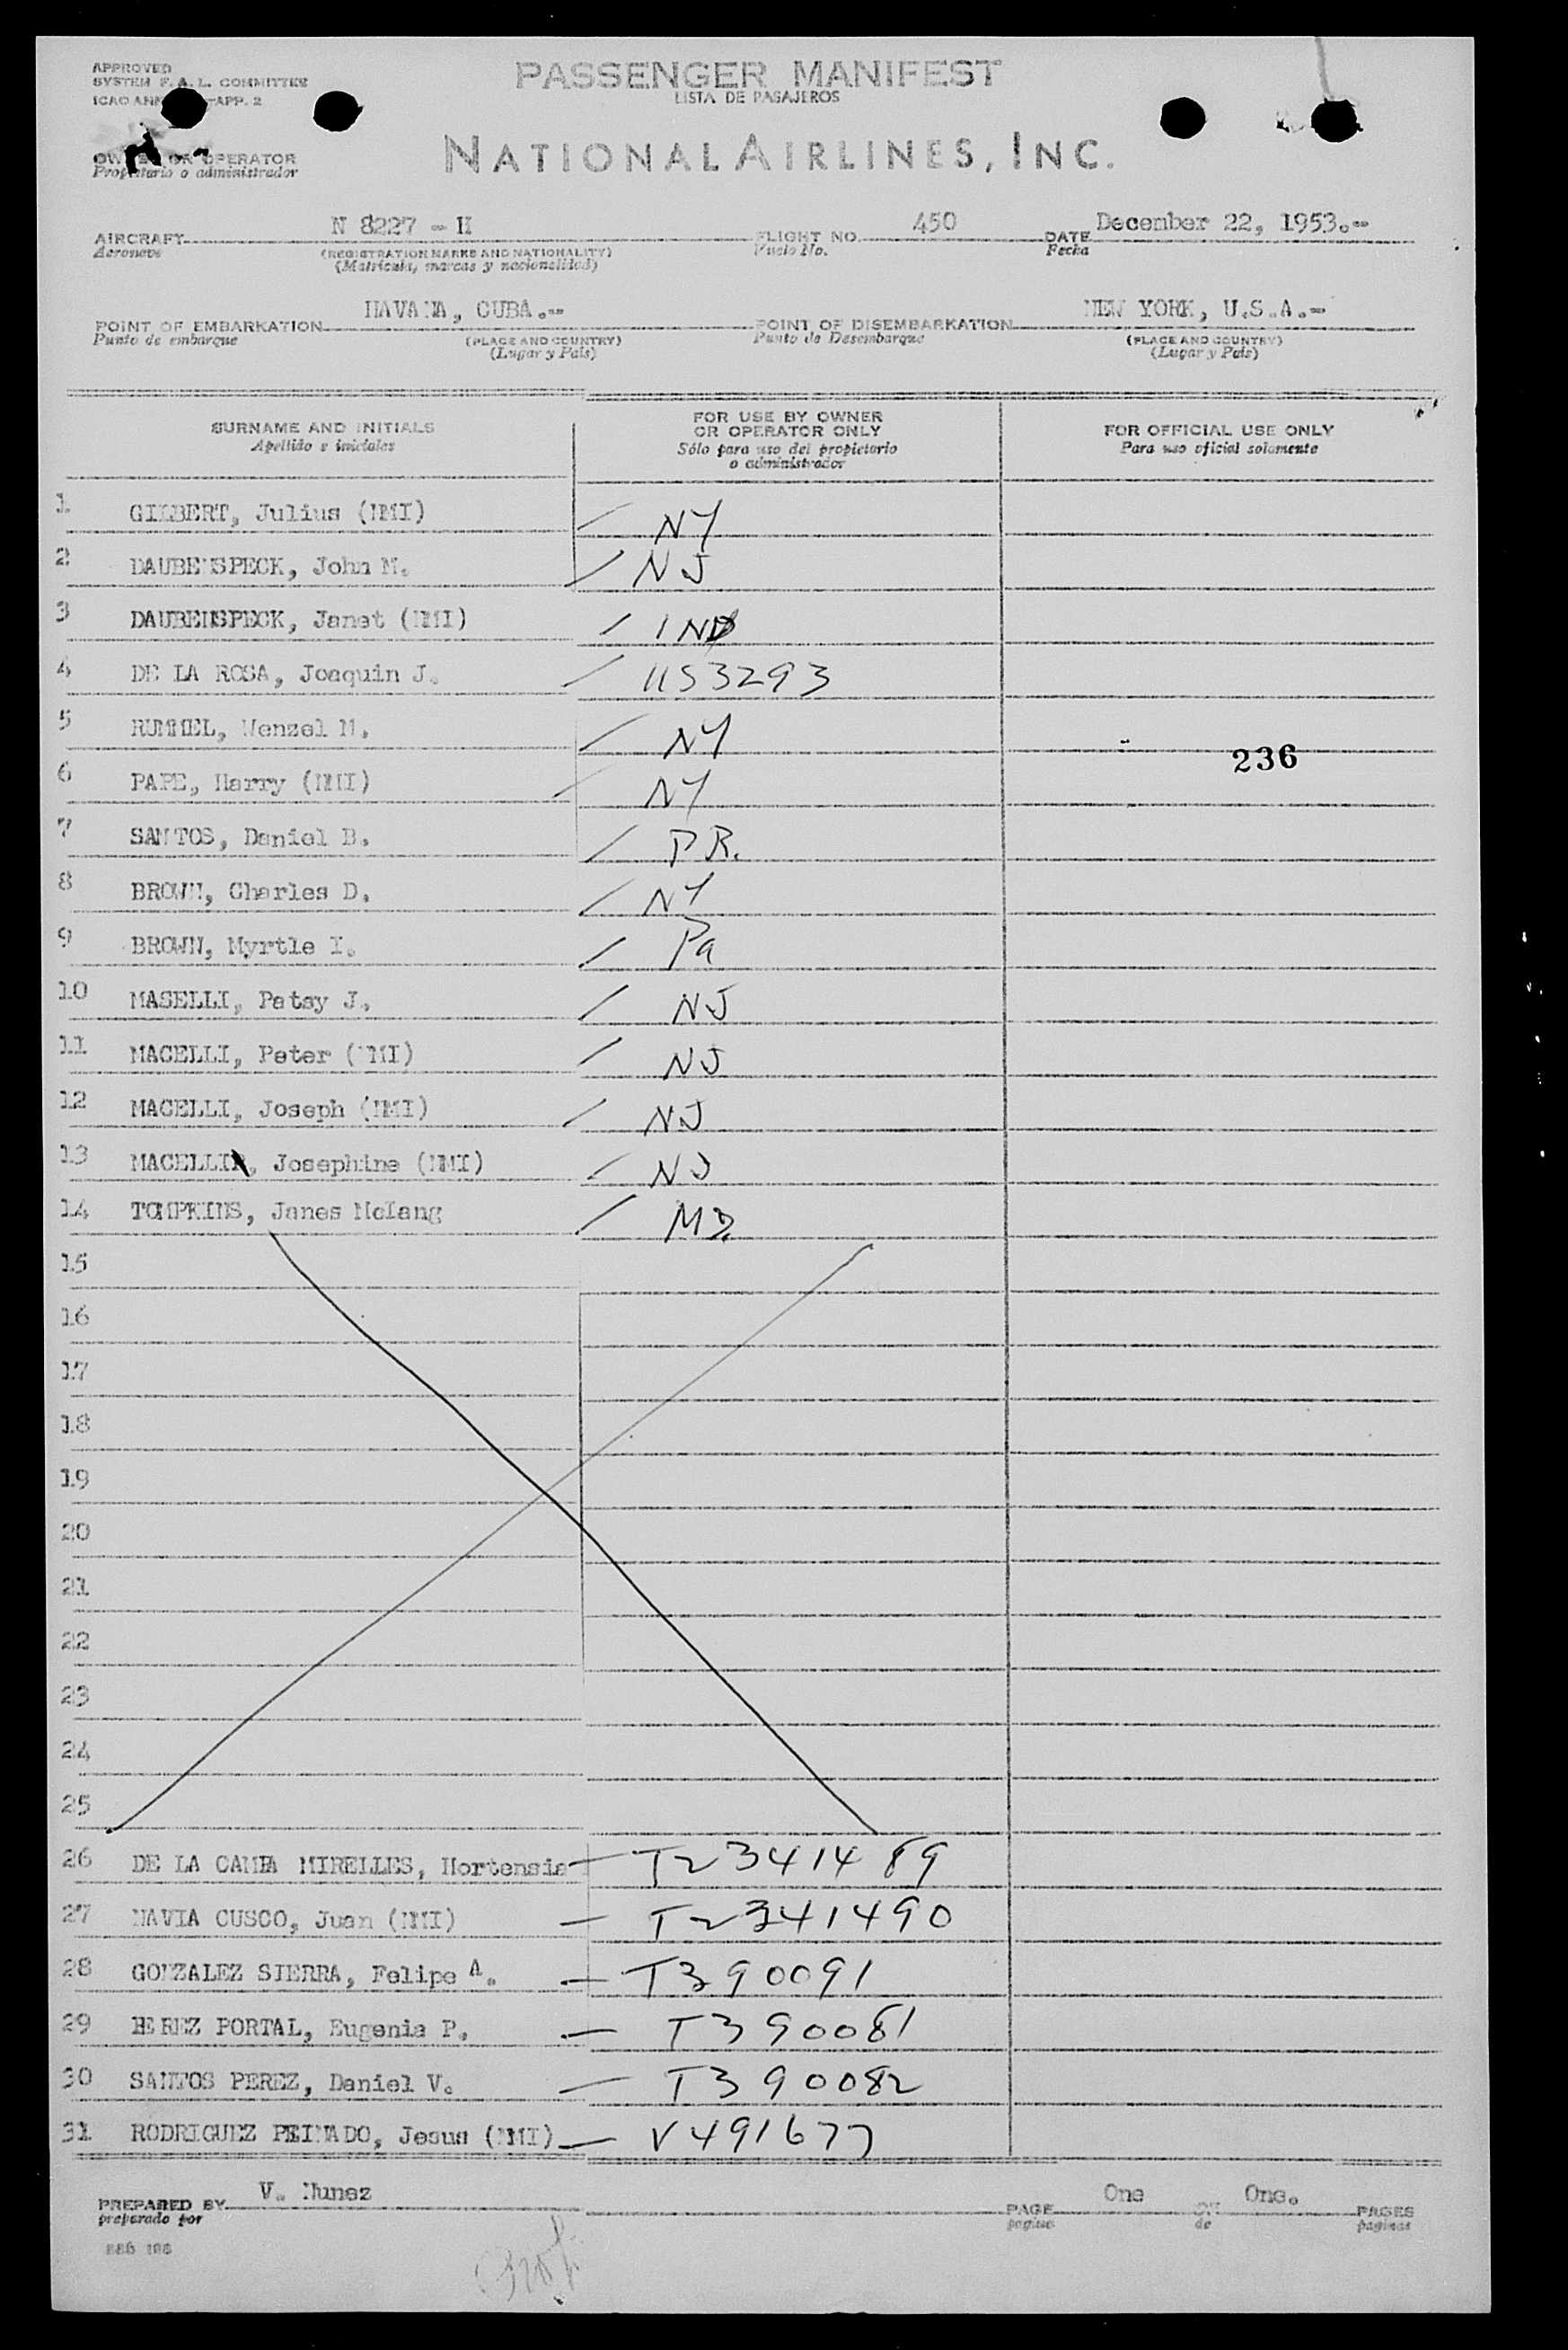 APPROVED
SYSTEM F. A. L. COMMITTEE
ICAO APP. 2
PASSENGER MANIFEST
LISTA DE PASAJEROS
OWNER OR OPERATOR
Propietario o administrador
NATIONAL AIRLINES, INC.
AIRCRAFT N 8227 - H FLIGHT NO. 450 DATE December 22, 1953.-
Aeronave (REGISTRATION MARKS AND NATIONALITY) Vuelo No. Fecha
(Matricula, marcas y nacionalidad)
POINT OF EMBARKATION HAVANA, CUBA.- POINT OF DISEMBARKATION NEW YORK, U.S.A.-
Punto de embarque (PLACE AND COUNTRY) Punto de Desembarque (PLACE AND COUNTRY)
(Lugar y País) (Lugar y País)
SURNAME AND INITIALS
Apellido e iniciales
FOR USE BY OWNER
OR OPERATOR ONLY
Sólo para uso del propietario
o administrador
FOR OFFICIAL USE ONLY
Para uso oficial solamente
1 GILBERT, Julius (NMI) / NY
2 DAUBENSPECK, John M. / NJ
3 DAUBENSPECK, Janet (NMI) / IND
4 DE LA ROSA, Joaquin J. / 1153293
5 RUMMEL, Wenzel M. / NY
236
6 PAPE, Harry (NMI) / NY
7 SANTOS, Daniel B. / P R.
8 BROWN, Charles D. / NY
9 BROWN, Myrtle I. / Pa
10 MASELLI, Patsy J. / NJ
11 MACELLI, Peter (NMI) / NJ
12 MACELLI, Joseph (NMI) / NJ
13 MACELLI, Josephine (NMI) / NJ
14 TOMPKINS, Janes McIang / MD.
15
16
17
18
19
20
21
22
23
24
25
26 DE LA CAMPA MIRELLES, Hortensia — T2341489
27 NAVIA CUSCO, Juan (NMI) — T2341490
28 GONZALEZ SIERRA, Felipe A. — T390091
29 PEREZ PORTAL, Eugenia P. — T390081
30 SANTOS PEREZ, Daniel V. — T390082
31 RODRIGUEZ PEINADO, Jesus (NMI) — V491677
PREPARED BY V. Nunez PAGE One OF One. PAGES
preparado por pagina de paginas